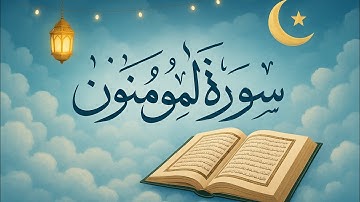 سورة لمومنون